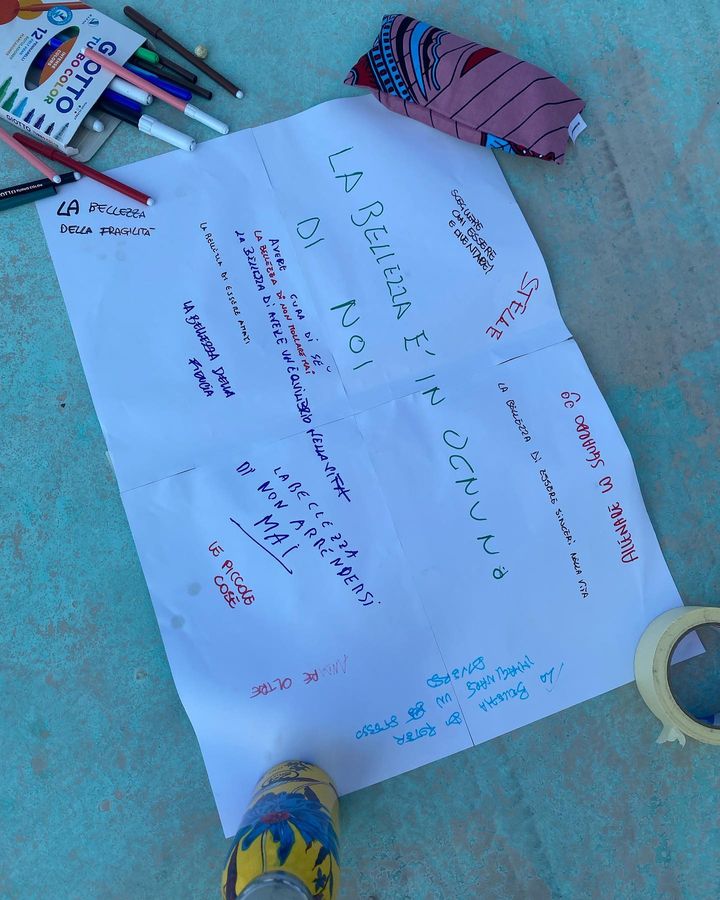 12
GIOTTO
TURBO COLOR
LA BELLEZZA
DELLA FRAGILITÀ
LA BELLEZZA DI ESSERE AMATI
AVERE CURA DI SE
LA BELLEZZA DI NON MOLLARE MAI
LA BELLEZZA DI AVERE UN EQUILIBRIO NELLA VITA
LA BELLEZZA DELLA
FIDUCIA
LA BELLEZZA E' IN OGNUNO
DI NOI
SCEGLIERE
CHI ESSERE
E DIVENTARE!
STELLE
LA BELLEZZA DI ESSERE SINCERI NELLA VITA
ALLENARE LO SGUARDO
LA BELLEZZA
DI NON ARRENDERSI
MAI
LE PICCOLE
COSE
ANDARE OLTRE
LA BELLEZZA
DI POTER
IMMAGINARE
UN
DIVERSO